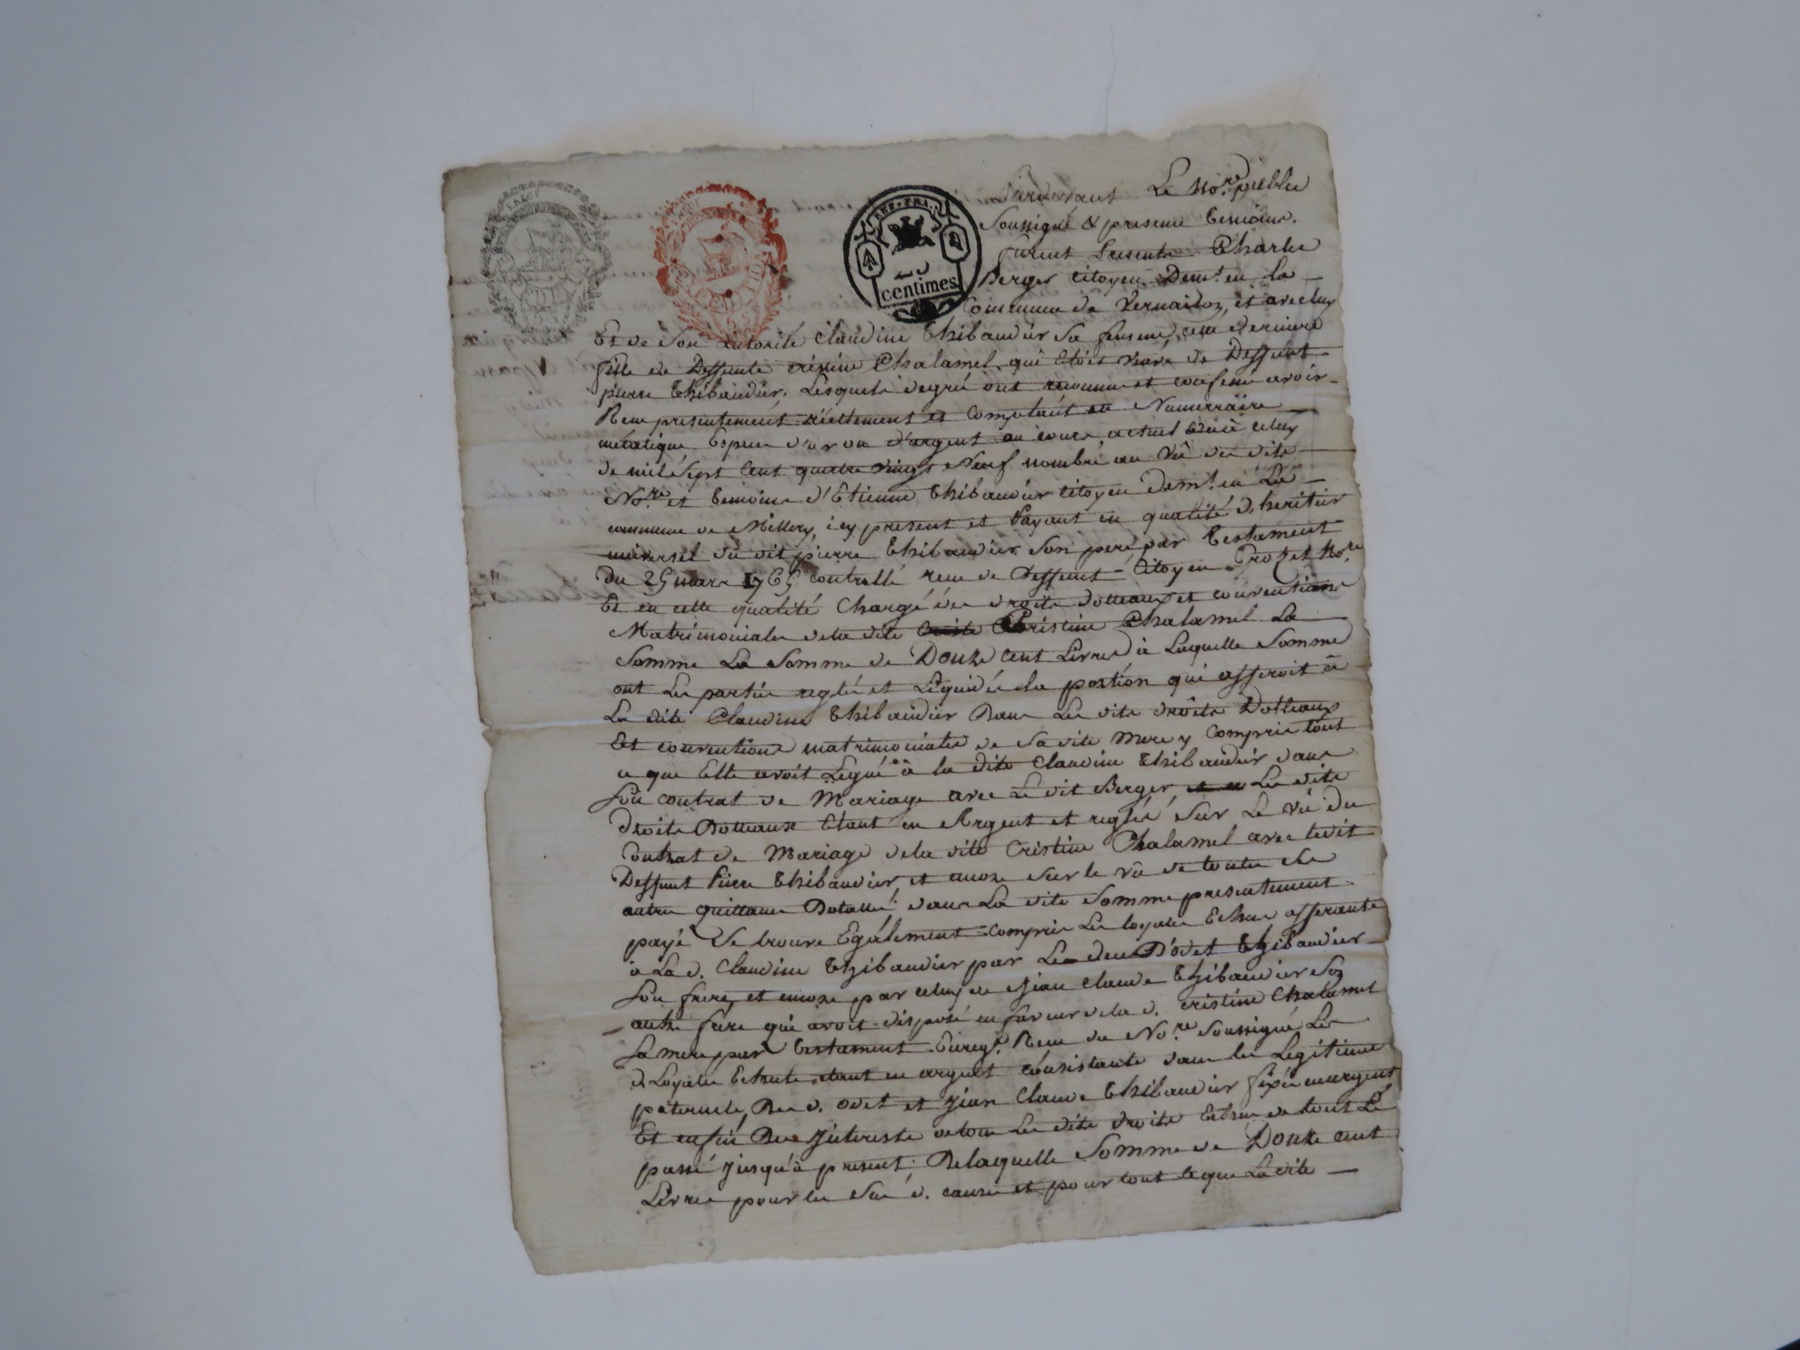 REP. FRA.
centimes
Pardevant Le No.re public
Soussigné & presens temoins
furent Presents Charles
Berger citoyen Demt. en La
Commune de Vernaison, et avec luy
Et de Son autorité Claudine Thibaudier Sa femme, cette derniere
fille de Deffunte cristine Chalamel qui étoit veuve de Deffunt
pierre Thibaudier. Lesquels de gré ont reconnu et confessé avoir
Recu presentement réellement et comptant en Numerraire
metalique, Especes d'or ou d'argent au cours actuel
de mil Sept Cent quatre vingt Neuf nombré au Vû des dits
No.re et temoins d'Etienne Thibaudier citoyen demt. en La
commune de Millery, icy present et Payant en qualité d'heritier
universel du dit pierre Thibaudier Son pere par Testament
du 25 mars 1765 controllé recu de Deffunt Citoyen No.re
Et en cette qualité Chargé des droits Dotteaux et conventions
Matrimoniales de la dite Cristine Chalamel La
Somme La Somme de Douze cent Livres à Laquelle Somme
ont Les parties reglé et Liquidé la portion qui afferoit à
La dite Claudine Thibaudier Dans Les dits droits Dotteaux
Et conventions matrimoniales de Sa dite Mere y compris tout
ce que Elle avoit Legué à la dite Claudine Thibaudier dans
Son contrat de Mariage avec Le dit Berger, Les dits
droits Dotteaux Etant en Argent et reglés Sur Le vû du
Contrat de Mariage de la dite Cristine Chalamel avec ledit
Deffunt Pierre Thibaudier, et encore Sur le vû de toutes Ses
autres quittances Dotalles; dans La dite Somme presentement
payé Se trouve Egalement compris Les loyales Echues afferante
à La d. Claudine Thibaudier par Le deces D'odet Thibaudier
Son frere, et encore par celuy de Jean Claude Thibaudier Son
autre frere qui avoit disposé en faveur de la d. cristine Chalamel
Sa mere par testament Enregt. Recu du No.re Soussigné Les
d. Loyales Echute etant en argent consistante dans les Legitimes
paternelle, Des d. odet et Jean Claude Thibaudier fixée en argent
Et enfin Des Interests de tous Les dits droits Echus de tout Le
passé jusqu'à present; De laquelle Somme de Douze cent
Livres pour les Sus d. causes et pour tout ce que La dite